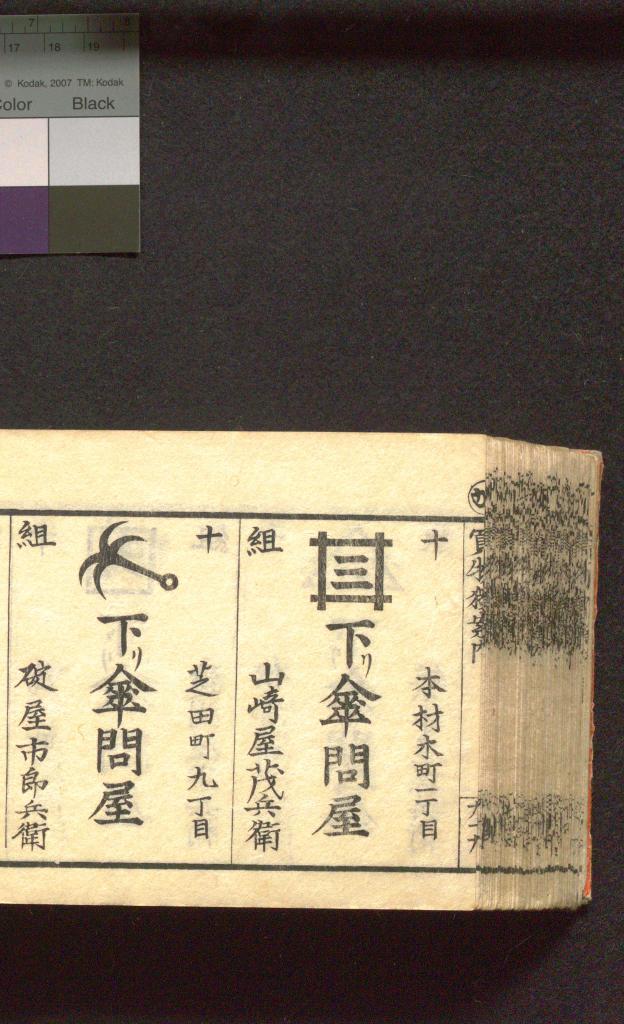 © Kodak, 2007 TM: Kodak
Color Black
7 8
17 18 19
か
十
本材木町一丁目
三
下リ傘問屋
組
山崎屋茂兵衛
十
芝田町九丁目
下リ傘問屋
組
碇屋市郎兵衛